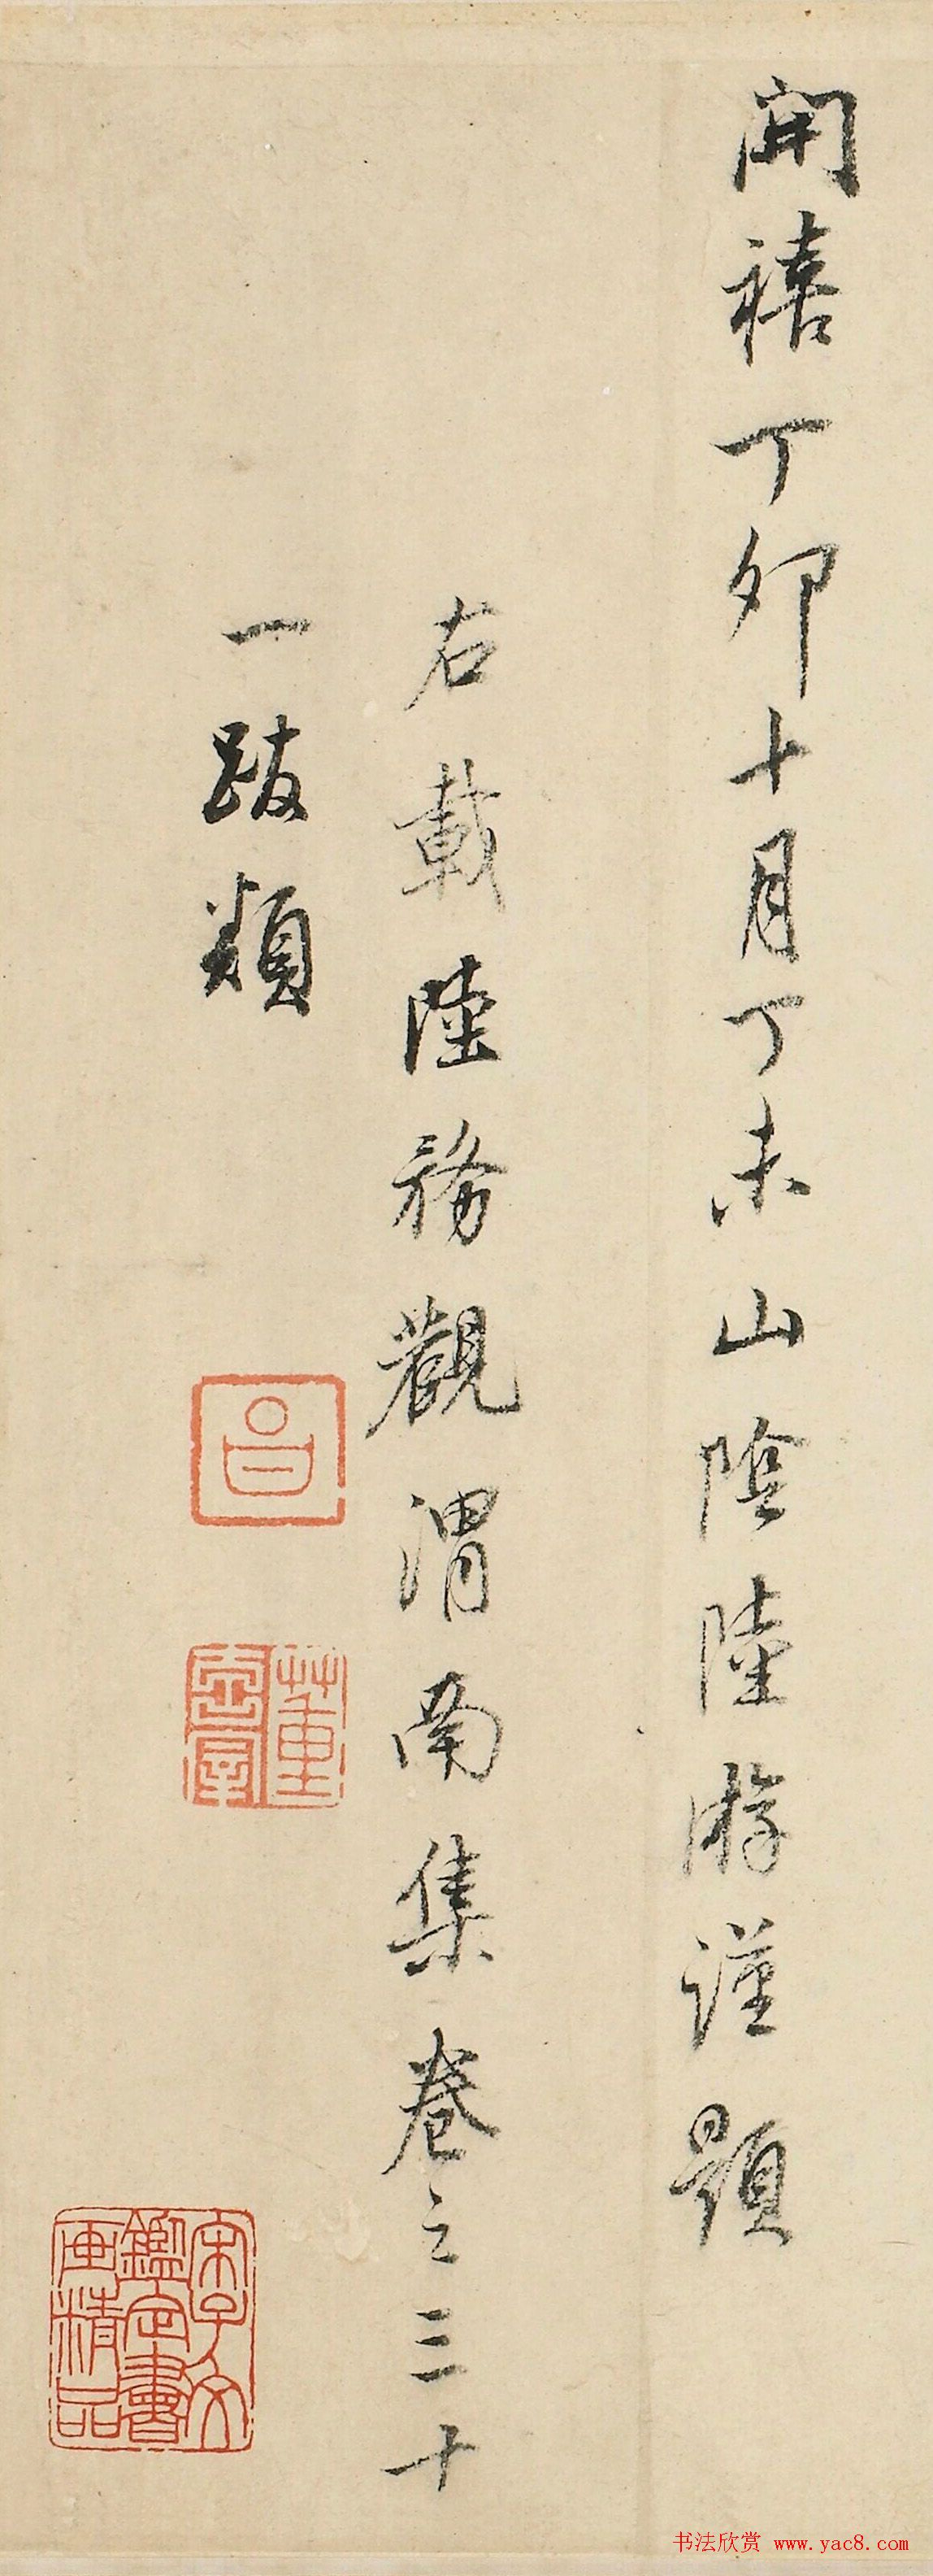 開禧丁卯十月丁未山陰陸游謹題
右載陸務觀渭南集卷之三十
一跋類
董
宋子文
鑑定書
画精品
书法欣赏 www.yac8.com